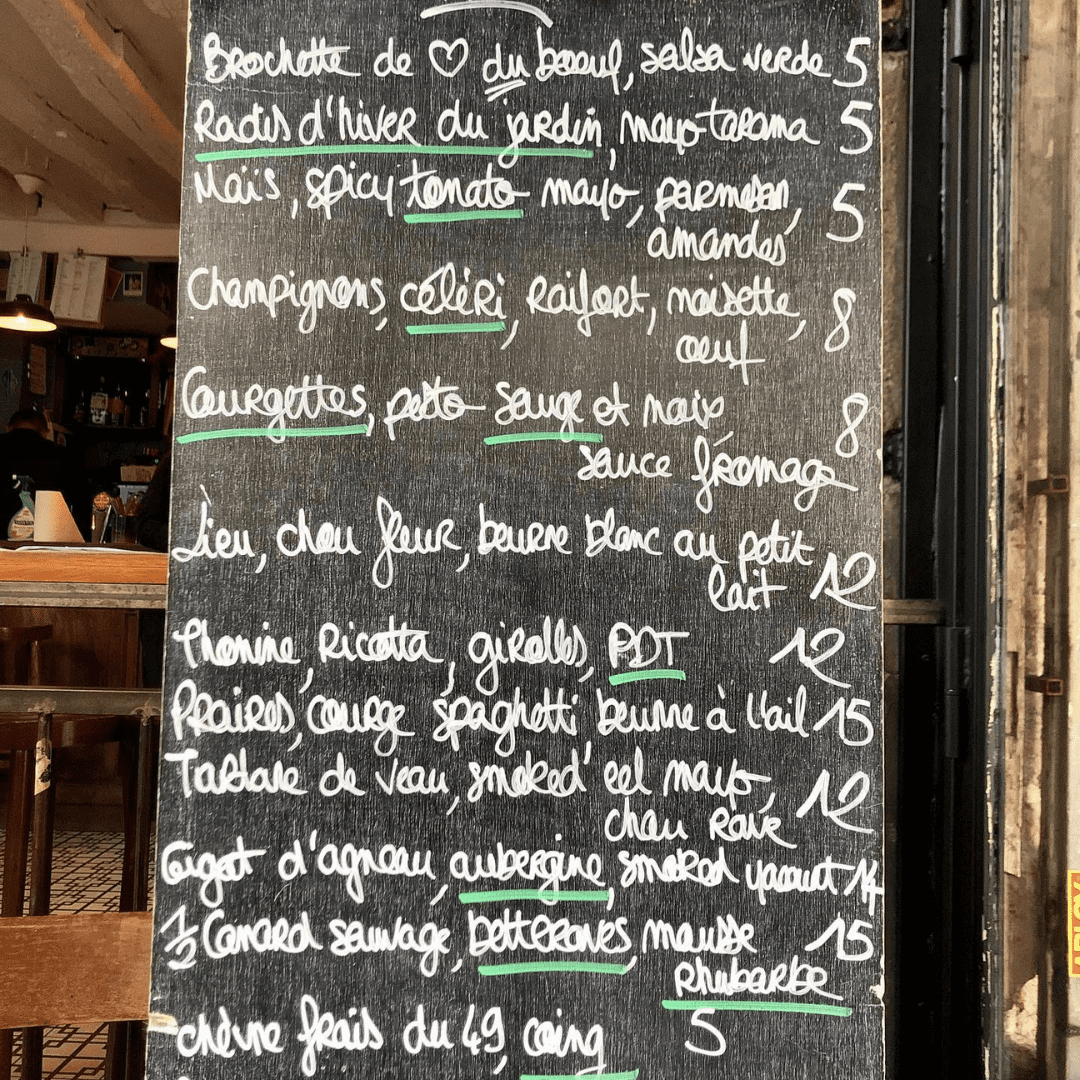 Brochette de ♡ du boeuf, salsa verde 5
Radis d'hiver du jardin, mayo tarama 5
Maïs, spicy tomato mayo, parmesan, 5
amandes
Champignons, céléri, raifort, noisette, 8
œuf
Courgettes, pesto sauge et maïs, 8
sauce fromage
Lieu, chou fleur, beurre blanc au petit
lait 12
Thonine, Ricotta, girolles, PDT 12
Praires, courge spaghetti beurre à l'ail 15
Tartare de veau, smoked eel mayo, 12
chou rave
Gigot d'agneau, aubergine, smoked yaourt 14
1/2 Canard sauvage, betteraves, mousse 15
rhubarbe
chèvre frais du 49, coing 5